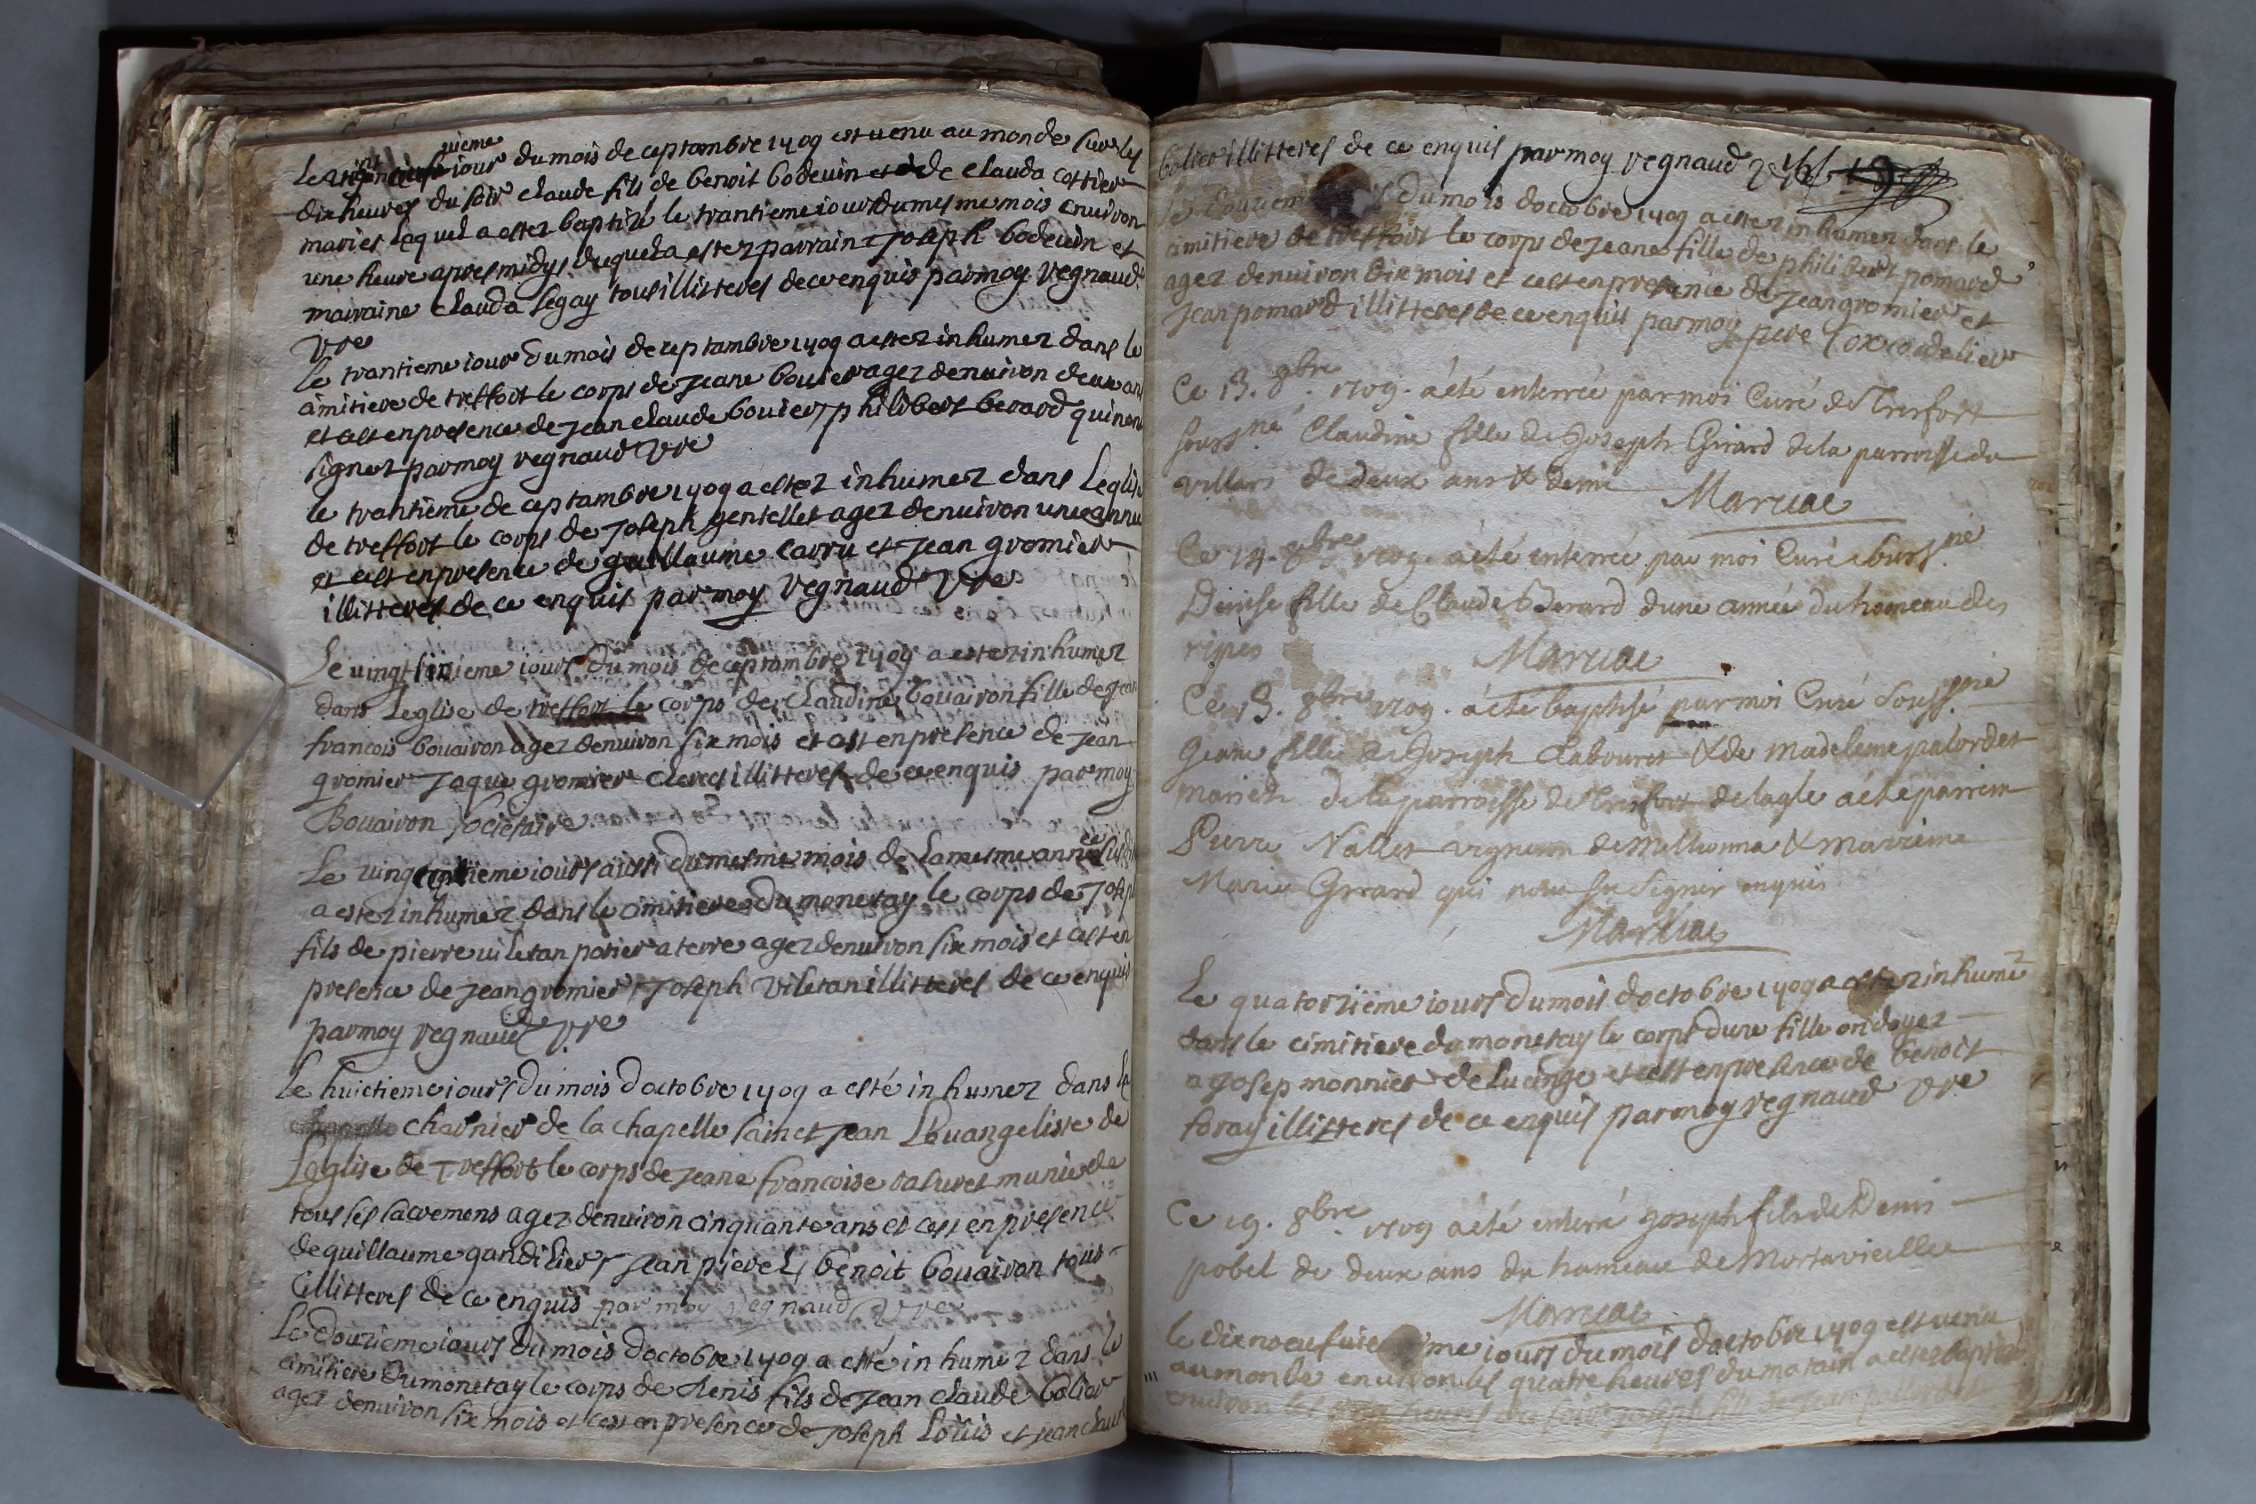 uieme
le jour du mois de ceptambre 1709 est venu au monde sur les
dix heures du soir claude fils de benoit bodeuin et de clauda cottier
mariez lequel a ester baptisé le trantieme iour du mesme mois enuiron
une heure apres midys duquel a ester parrain Joseph bodeuin et
mairaine clauda legay tous illitteres de ce enquis par moy regnaud
vre
le trantieme iour du mois de ceptambre 1709 a ester inhumez dans le
cimitiere de treffort le corps de Jeane bouier agez denuiron deux ans
et cest en presence de Jean claude bouier, philibert berard qui nont
signez par moy regnaud vre
le trantieme de ceptambre 1709 a ester inhumez dans Leglise
de treffort le corps de Joseph gentellet agez denuiron une annee
et cest en presence de guillaume carru et Jean gromier
illitteres de ce enquis par moy regnaud vre
Le uingt iours du mois de ceptambre 1709 a ester inhumez
dans Leglise de treffort le corps de Claudine bouairon fille de Jean
francois bouairon agez denuiron six mois et cest en presence de Jean
gromier Jaque gromier clercs illitteres de ce enquis par moy
Bouairon societaire
Le uingt iours aussi du mesme mois de la mesme année
a ester inhumez dans le cimitiere du monetay le corps de Joseph
fils de pierre uiletan potier a terre agez denuiron six mois et cest en
presence de Jean gromier, Joseph viletan illitteres de ce enquis
par moy regnaud vre
Le huictieme iours du mois doctobre 1709 a esté inhumez dans la
charnier de la chapelle sainct Jean Leuangeliste de
Leglise de Treffort le corps de Jeane francoise munie de
tous les sacremens agez denuiron cinquante ans et cest en presence
de guillaume gandilier, Jean pierel, benoit bouairon tous
illitteres de ce enquis par moy regnaud vre
Le douzieme iours du mois doctobre 1709 a esté inhumez dans le
cimitiere du monetay le corps de denis fils de Jean claude bolier
agez denuiron six mois et cest en presence de Joseph Loüis et Jean claude
bolier illitteres de ce enquis par moy regnaud
le du mois doctobre 1709 a ester inhumez dans le
cimitiere de treffort le corps de Jeane fille de philibert pomard
agez denuiron six mois et cest en presence de Jean gromier et
Jean pomard illitteres de ce enquis par moy pere cordelier
Ce 13. 8bre. 1709. a été enterrée par moi Curé de Treffort
souss.né Claudine fille de Joseph Girard de la parroisse du
villars de deux ans & demi Maruac
Ce 14. 8bre 1709. a été enterrée par moi Curé souss.né
Denise fille de Claude Berard d'une année du hameau des
ripes Maruac
Ce 13. 8bre 1709. a été baptisé par moi Curé souss.né
Jeane fille de Joseph Clabouret & de Madeleine palordet
mariés de la parroisse de Treffort a été parrein
Pierre Nallet vigneron de & marreine
Marie Girard qui n'ont su signer enquis
Maruac
Le quatorzieme iours du mois doctobre 1709 a ester inhumé
dans le cimitiere du monetay le corps dune fille ondoyez
a Josep monnier de lucinge et cest en presence de benoit
foray illitteres de ce enquis par moy regnaud vre
Ce 19. 8bre. 1709 a été enterré Joseph fils de Denis
pobel de deux ans du hameau de Mortavieille
Maruac
le iours du mois doctobre 1709 est venu
au monde enuiron les quatre heures du matain a ester baptisé
enuiron